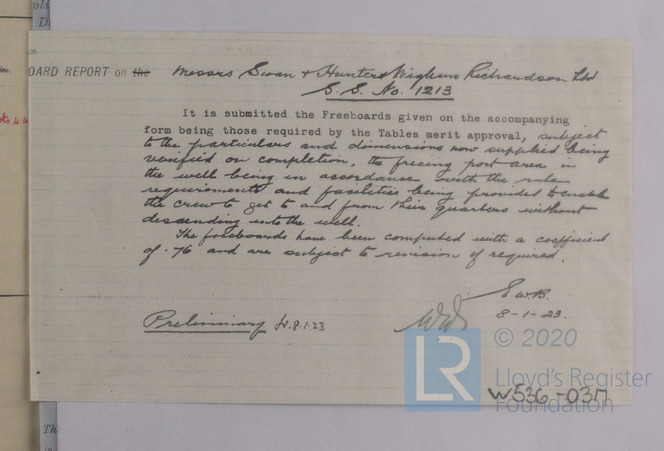 OARD REPORT on the Messrs Swan & Hunter & Wigham Richardson Ltd
S.S. No. 1213
It is submitted the Freeboards given on the accompanying
form being those required by the Tables merit approval, subject
to the particulars and dimensions now supplied being
verified on completion, the freeing port area in
the well being in accordance with the rule
requirements and facilities being provided to enable
the crew to get to and from their quarters without
descending into the well.
The freeboards have been computed with a coefficient
of .76 and are subject to revision if required.
E.W.B.
8-1-23.
Preliminary 8.1.23
© 2020
LR
Lloyd's Register
Foundation
W536-0317
Th